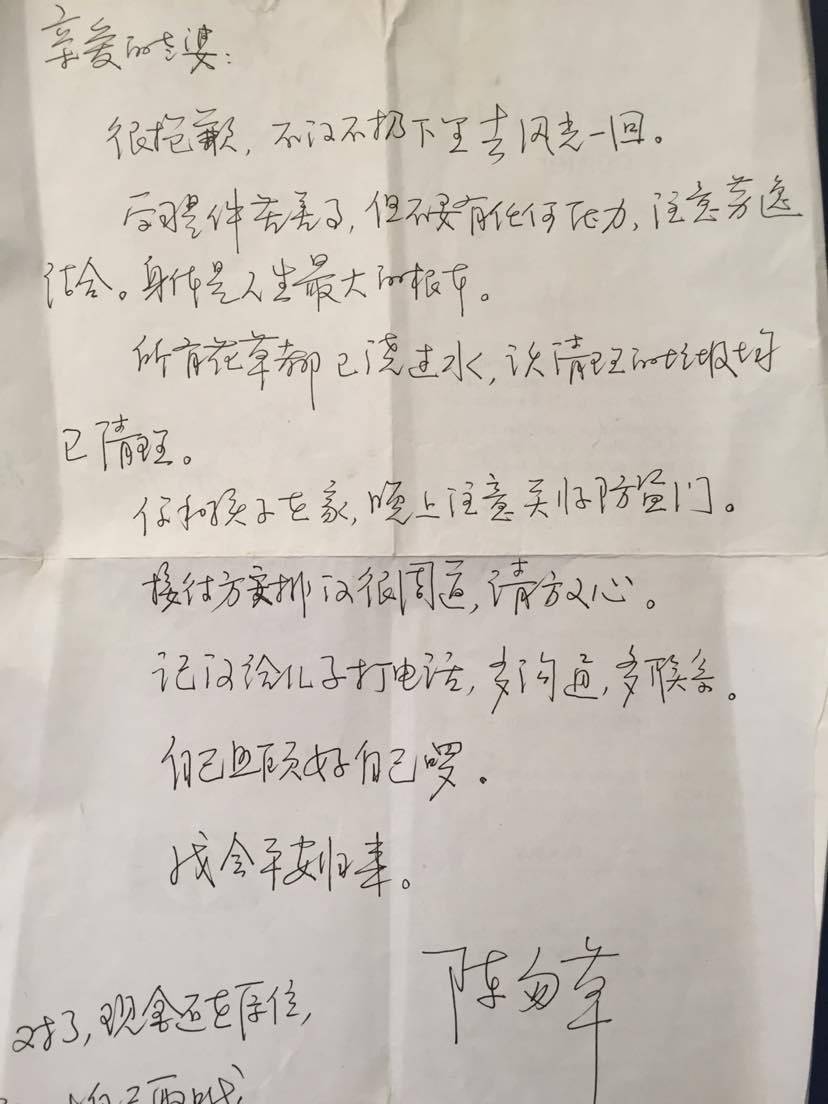 亲爱的老婆：
很抱歉，不得不扔下里去风光一回。
要是件苦差了，但不要有任何压力，注意劳逸
结合。身体是人生最大的根本。
所有花草都已浇过水，该清理的垃圾均
已清理。
你和孩子在家，晚上注意关好防盗门。
接待方安排得很周道，请放心。
记得给儿子打电话，多沟通，多联系。
自己照顾好自己啰。
我会平安归来。
陈
对了，现金还在原位，